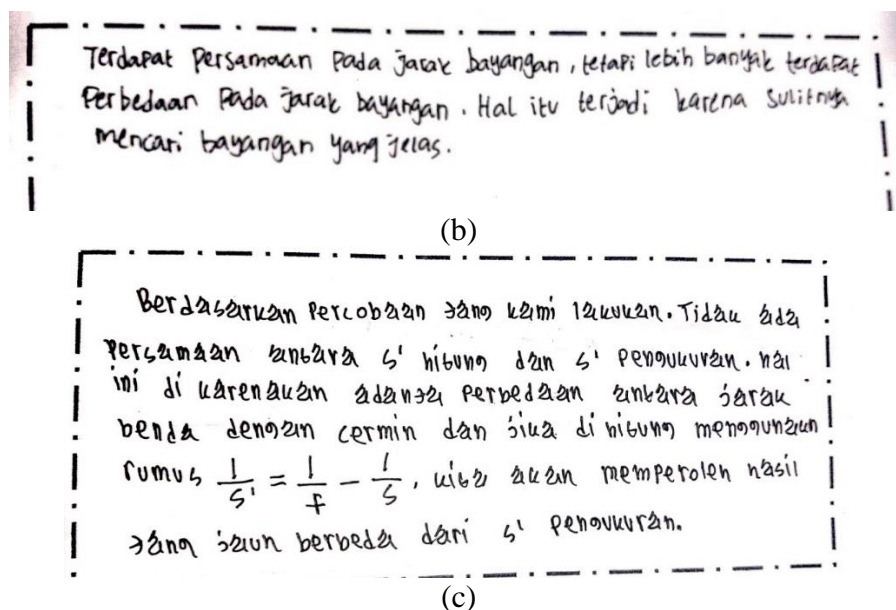 Terdapat Persamaan Pada jarak bayangan, tetapi lebih banyak terdapat
Perbedaan Pada jarak bayangan. Hal itu terjadi karena sulitnya
mencari bayangan yang jelas.
(b)
Berdasarkan Percobaan yang kami lakukan. Tidak ada
Persamaan antara s' hitung dan s' Pengukuran. hal
ini di karenakan adanya Perbedaan antara jarak
benda dengan cermin dan jika di hitung menggunakan
rumus 1/s' = 1/f - 1/s, kita akan memperoleh hasil
yang jauh berbeda dari s' Pengukuran.
(c)